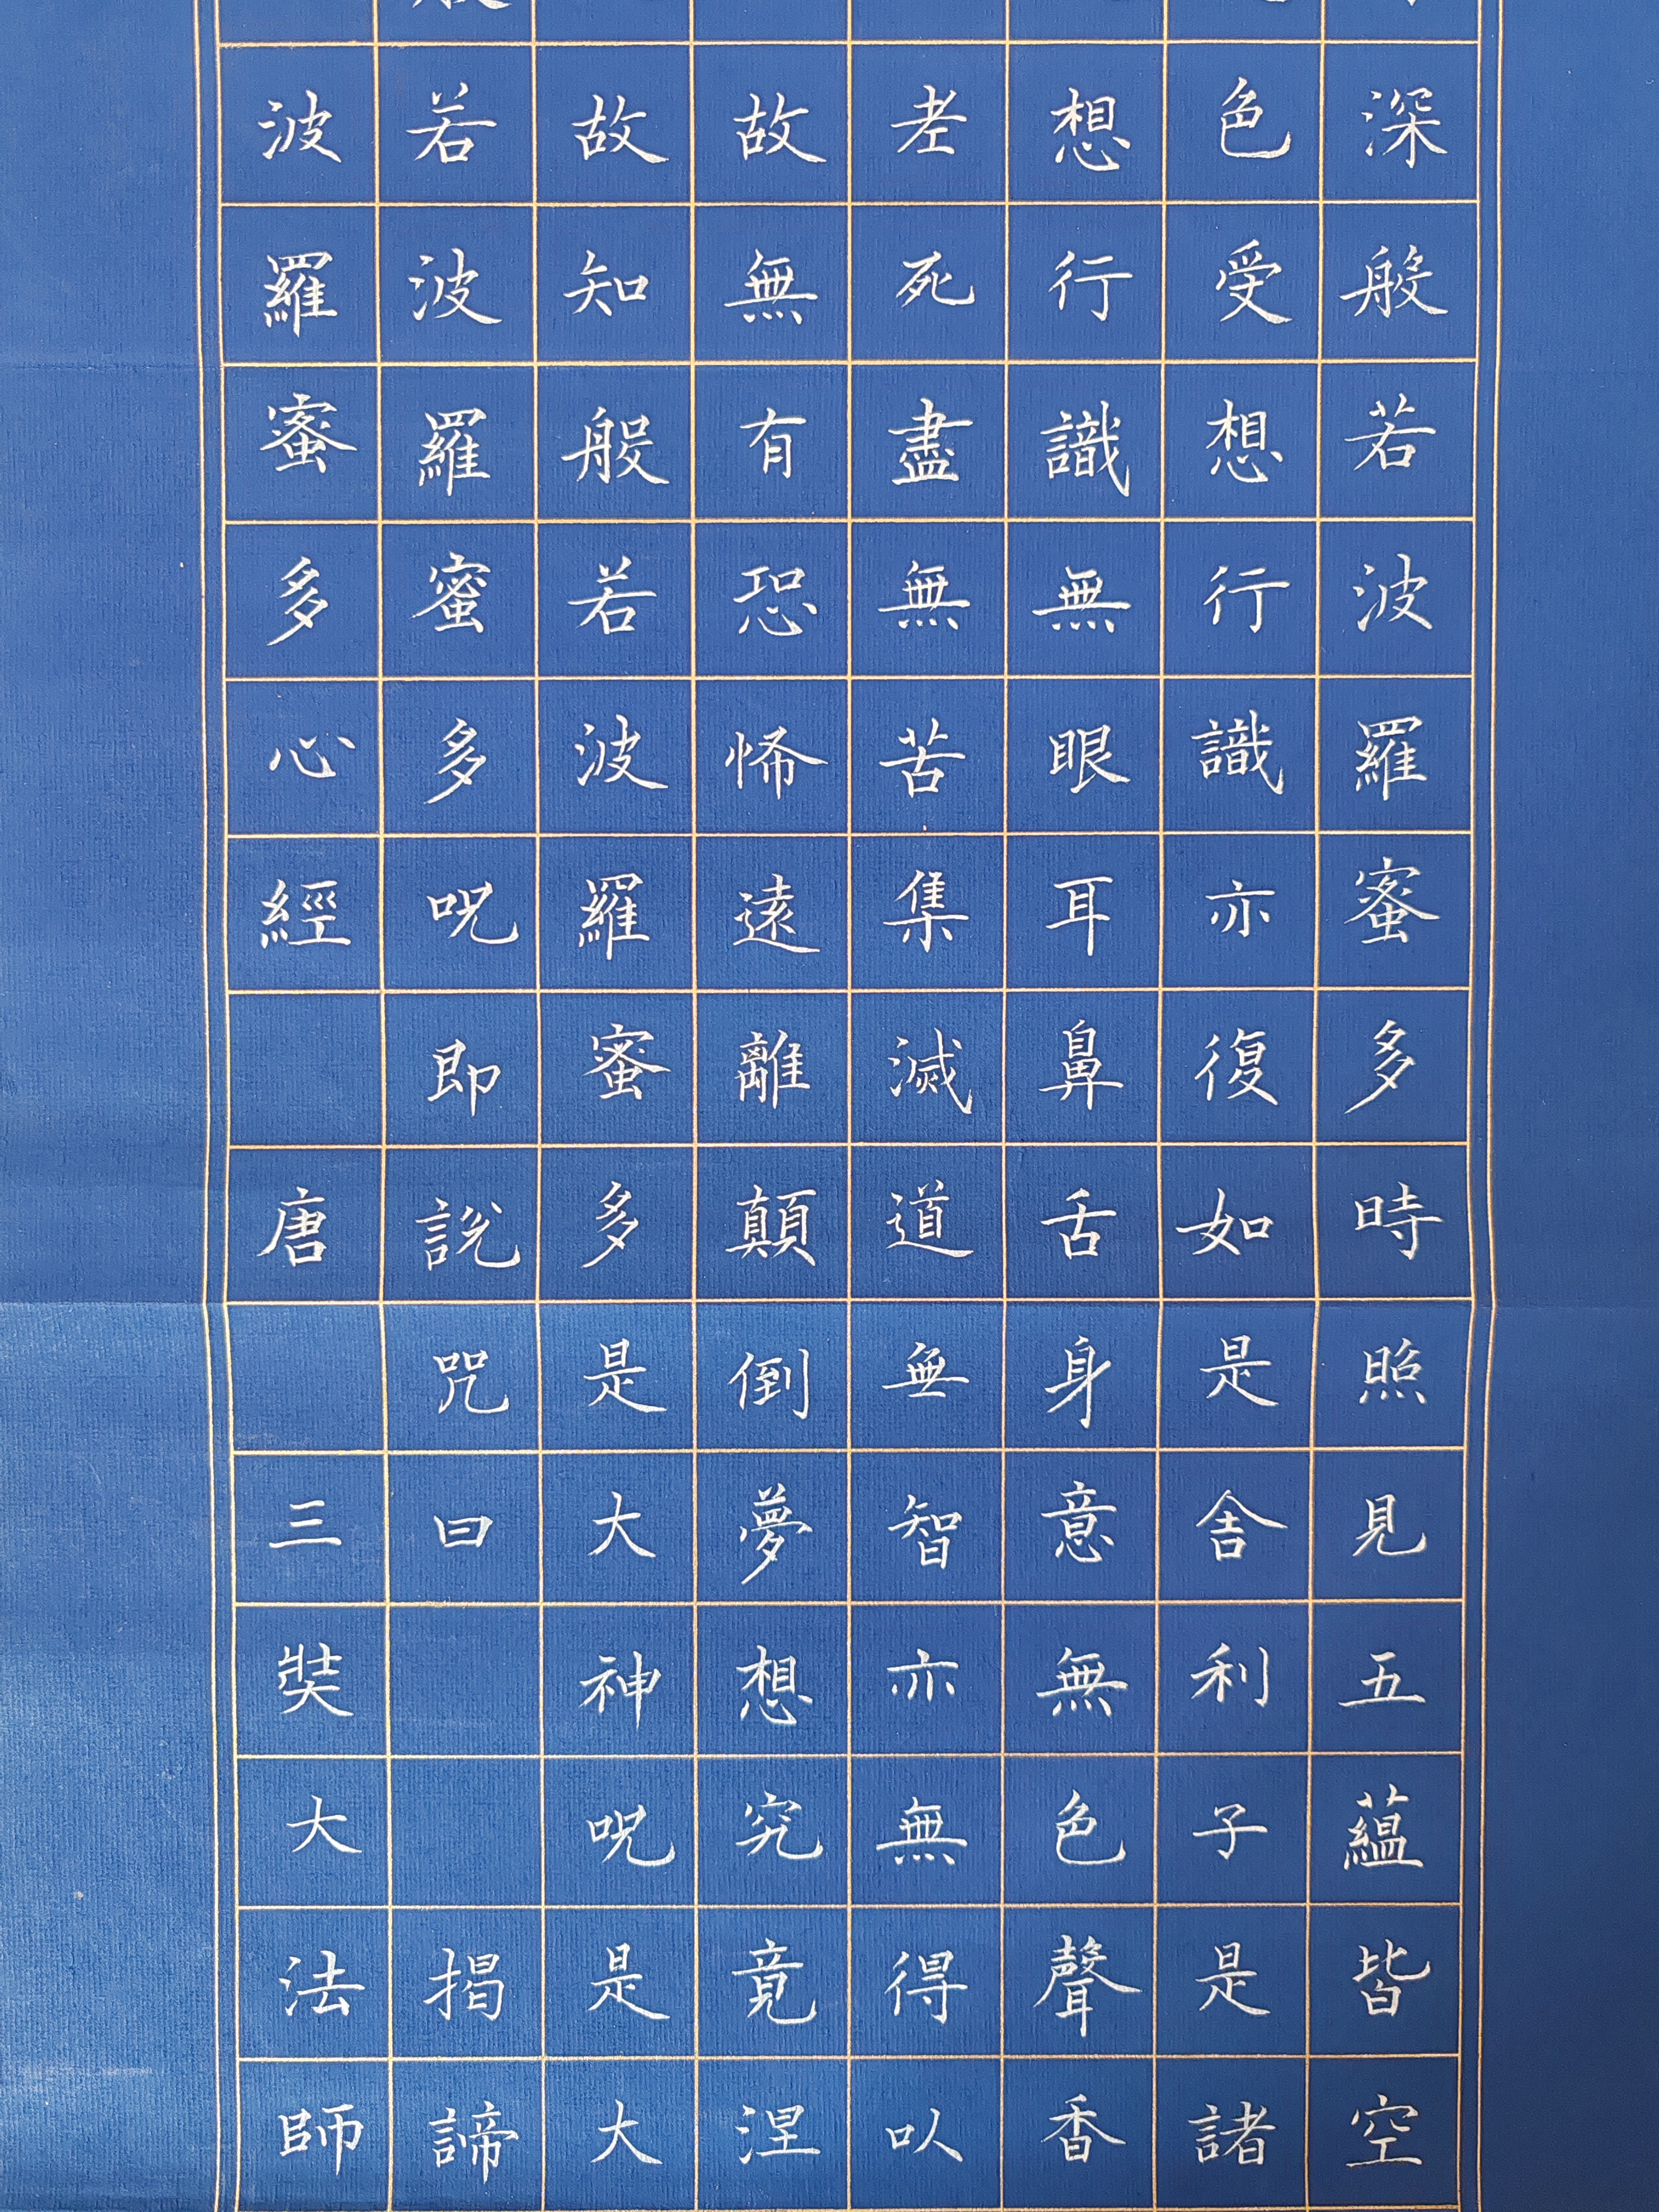 深般若波羅蜜多時照見五蘊皆空
色受想行識亦復如是舍利子是諸
想行識無眼耳鼻舌身意無色聲香
老死盡無苦集滅道無智亦無得以
故無有恐怖遠離顛倒夢想究竟涅
故知般若波羅蜜多是大神呪是大
若波羅蜜多呪即說咒曰 揭諦
波羅蜜多心經 唐 三奘大法師